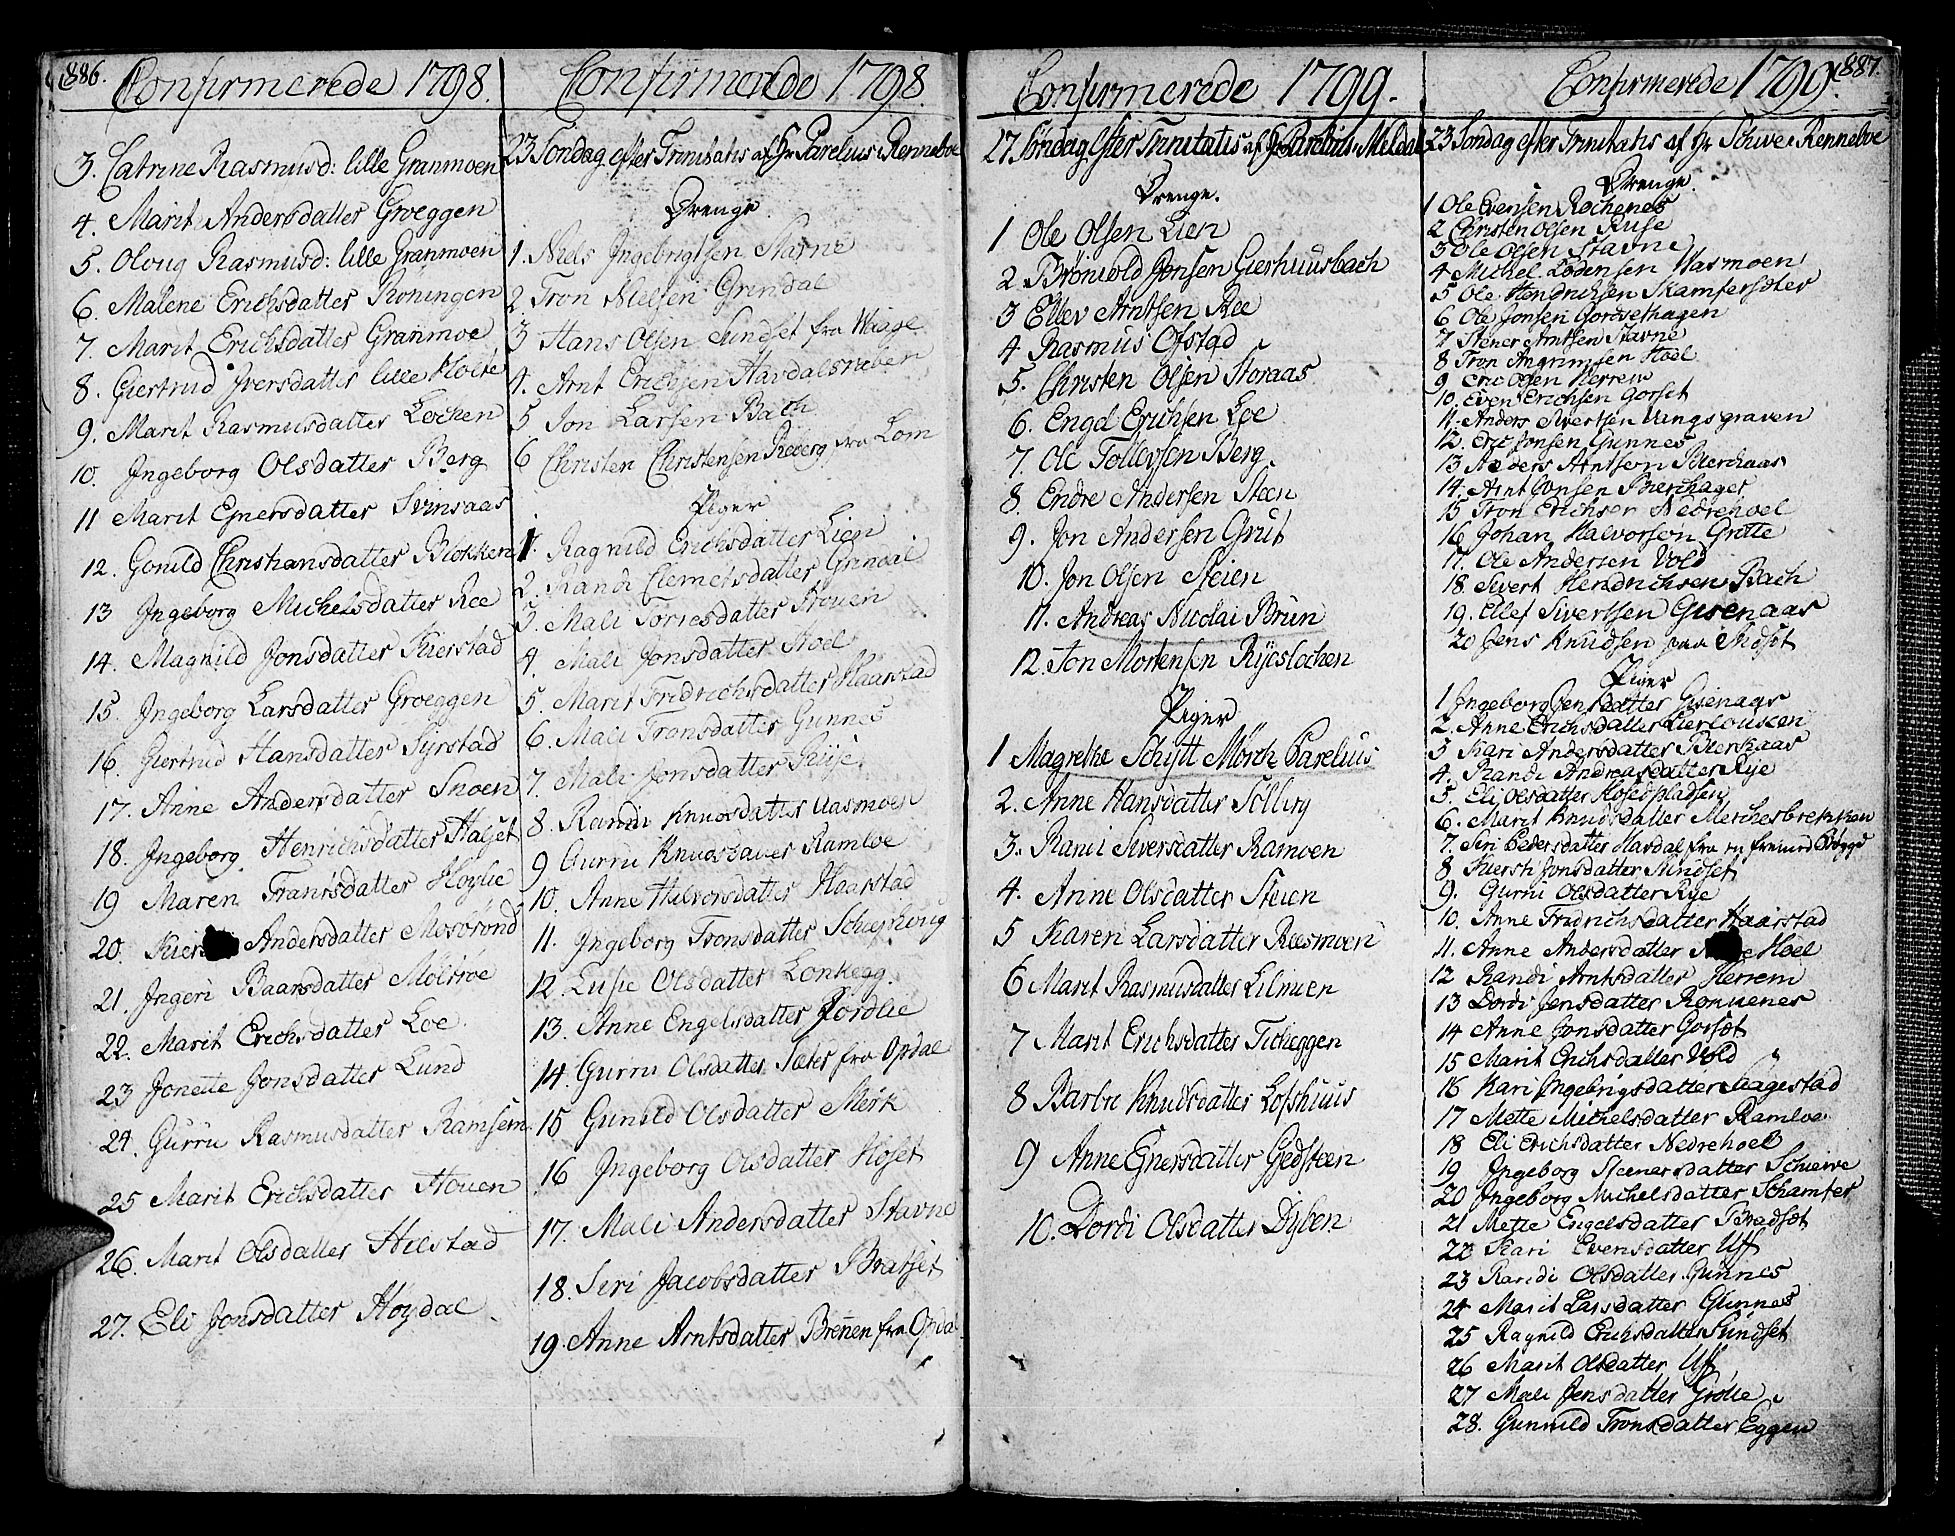 886.
Confirmerede 1798.
3. Catrine Rasmusd: lille Granmoen
4. Marit Andersdatter Groeggen
5. Oloug Rasmusd: lille Granmoen
6. Malene Erichsdatter Roningen
7. Marit Erichsdatter Granmoe
8. Giertrud Iversdatter lille Holte
9. Marit Rasmusdatter Lochen
10. Ingeborg Olsdatter Berg
11 Marit Einersdatter Svinsaas
12. Gonild Christiansdatter Blokken
13 Ingeborg Michelsdatter Ree
14. Magnild Jonsdatter Kierstad
15. Ingeborg Larsdatter Groeggen
16. Giertrud Hansdatter Syrstad
17. Anne Andersdatter Snoen
18. Ingeborg Henrichsdatter Halset
19 Maren Fransdatter Hoylie
20. Andersdatter Mosbrond
21. Ingeri Baarsdatter
22. Marit Erichsdatter Loe
23 Jonette Jonsdatter Lund
24. Gurru Rasmusdatter Ramsem
25 Marit Erichsdatter Houen
26. Marit Olsdatter Hilstad
27. Eli Jonsdatter Hoydal
Confirmerede 1798.
23 Söndag efter Trinitatis af Hr Parelius i Renneboe
Drenge.
1. Niels Ingebrigtsen Stavne
2. Tron Nielsen Grindal
3 Hans Olsen Sundset fra
4. Arnt Erichsen
5 Jon Larsen Bach
6 Christen Christensen Roberg fra Lom
Piger
1. Ragnild Erichsdatter Lien
2. Randi Clemetsdatter Grindal
3. Mali Torresdatter
4. Mali Jonsdatter Hoel
5. Marit Fridrichsdatter Haarstad
6. Mali Tronsdatter Gunnes
7. Mali Jonsdatter
8. Randi Knudsdatter Uasmoen
9 Gurru Knudsdatter Ramloe
10. Anne Halvorsdatter Haarstad
11. Ingeborg Tronsdatter
12. Lusie Olsdatter
13. Anne Engelsdatter Jordlie
14. Gurru Olsdatter Sæter fra Opdal
15 Gunild Olsdatter Mérk
16 Ingeborg Olsdatter Hoset
17. Mali Andersdatter Stavne
18. Siri Jacobsdatter Bratset
19. Anne Arntsdatter Brenen fra Opdal
Confirmerede 1799.
27 Söndag Efter Trinitatis af Hr Parelius i Meldal
Drenge.
1 Ole Olsen Lien
2. Brönild Jonsen Gierhuusbach
3 Ellev Arntsen Ree
4 Rasmus Ofstad
5. Christen Olsen Storaas
6. Engel Erichsen Loe
7. Ole Tollevsen Berg.
8. Endre Andersen Steen
9. Jon Andersen Grut
10. Jon Olsen Steien
11. Andreas Nicolai Brun
12. Jon Mortensen Ryeslochen
Piger
1 Magrethe Schytt Mörch Parelius
2. Anne Hansdatter Solberg
3. Randi Siversdatter Ramoen
4. Anne Olsdatter Steien
5 Karen Larsdatter Reesmoen
6 Marit Rasmusdatter Lilmoen
7 Marit Erichsdatter Ticheggen
8 Barbro Knudsdatter Lofshuus
9 Anne Einersdatter Gedsteen
10. Dordi Olsdatter Dyben
Confirmerede 1799.
887.
23 Söndag efter Trinitatis af Hr Schive i Renneboe
Drenge.
1 Ole Evensen Rochenes
2 Christen Olsen Ruse
3 Ole Olsen Stavne
4 Michel Lodensen Uasmoen
5 Ole Hendrichsen Skamfersæter
6 Ole Jonsen Gorsethagen
7 Stener Arntsen Stavne
8 Tron Angrimsen Hoel
9 Eric Olsen Herrem
10. Even Erichsen Gorset
11. Anders Sivertsen Vingsgraven
12. Eric Jonsen Gunnes
13 Anders Arntsen Bierchaas
14. Arnt Jonsen Bierchager
15 Tron Erichsen Nedrehoel
16 Johan Halvorsen Gritte
17. Ole Andersen Vold
18. Sivert Hendrichsen Bach
19. Ellef Sivertsen Gisenaas
20 Jens Knudsen paa Sndsæt
Piger
1 Ingeborg Jensdatter Gisenaas
2. Anne Erichsdatter
3 Kari Andersdatter Bierkaas
4. Randi Andreasdatter Rye
5. Eli Olsdatter Hosedpladsen
6. Marit Knudsdatter Merchesbrekken
7. Siri Pedersdatter Havdal fra en fremmed Bögd
8 Kiersti Jonsdatter Sundset
9. Gurru Olsdatter Rye
10. Anne Fridrichsdatter Haarstad
11. Anne Andersdatter Hoel
12 Randi Arntsdatter Herrem
13 Dordi Jensdatter
14 Anne Jonsdatter Gorset
15 Marit Erichsdatter Vold
16 Kari Ingebrigsdatter
17 Mette Michelsdatter Ramloe
18 Eli Erichsdatter Nedrehoel
19 Ingeborg Steenersdatter
20 Ingeborg Michelsdatter Schamfer
21 Mette Engelsdatter Bradset
22 Kari Evensdatter Uff
23 Randi Olsdatter Gunnes
24 Marit Larsdatter Gunnes
25 Ragnild Erichsdatter Sundset
26 Marit Olsdatter Uff
27 Mali Jensdatter
28. Gunnild Tronsdatter Eggen